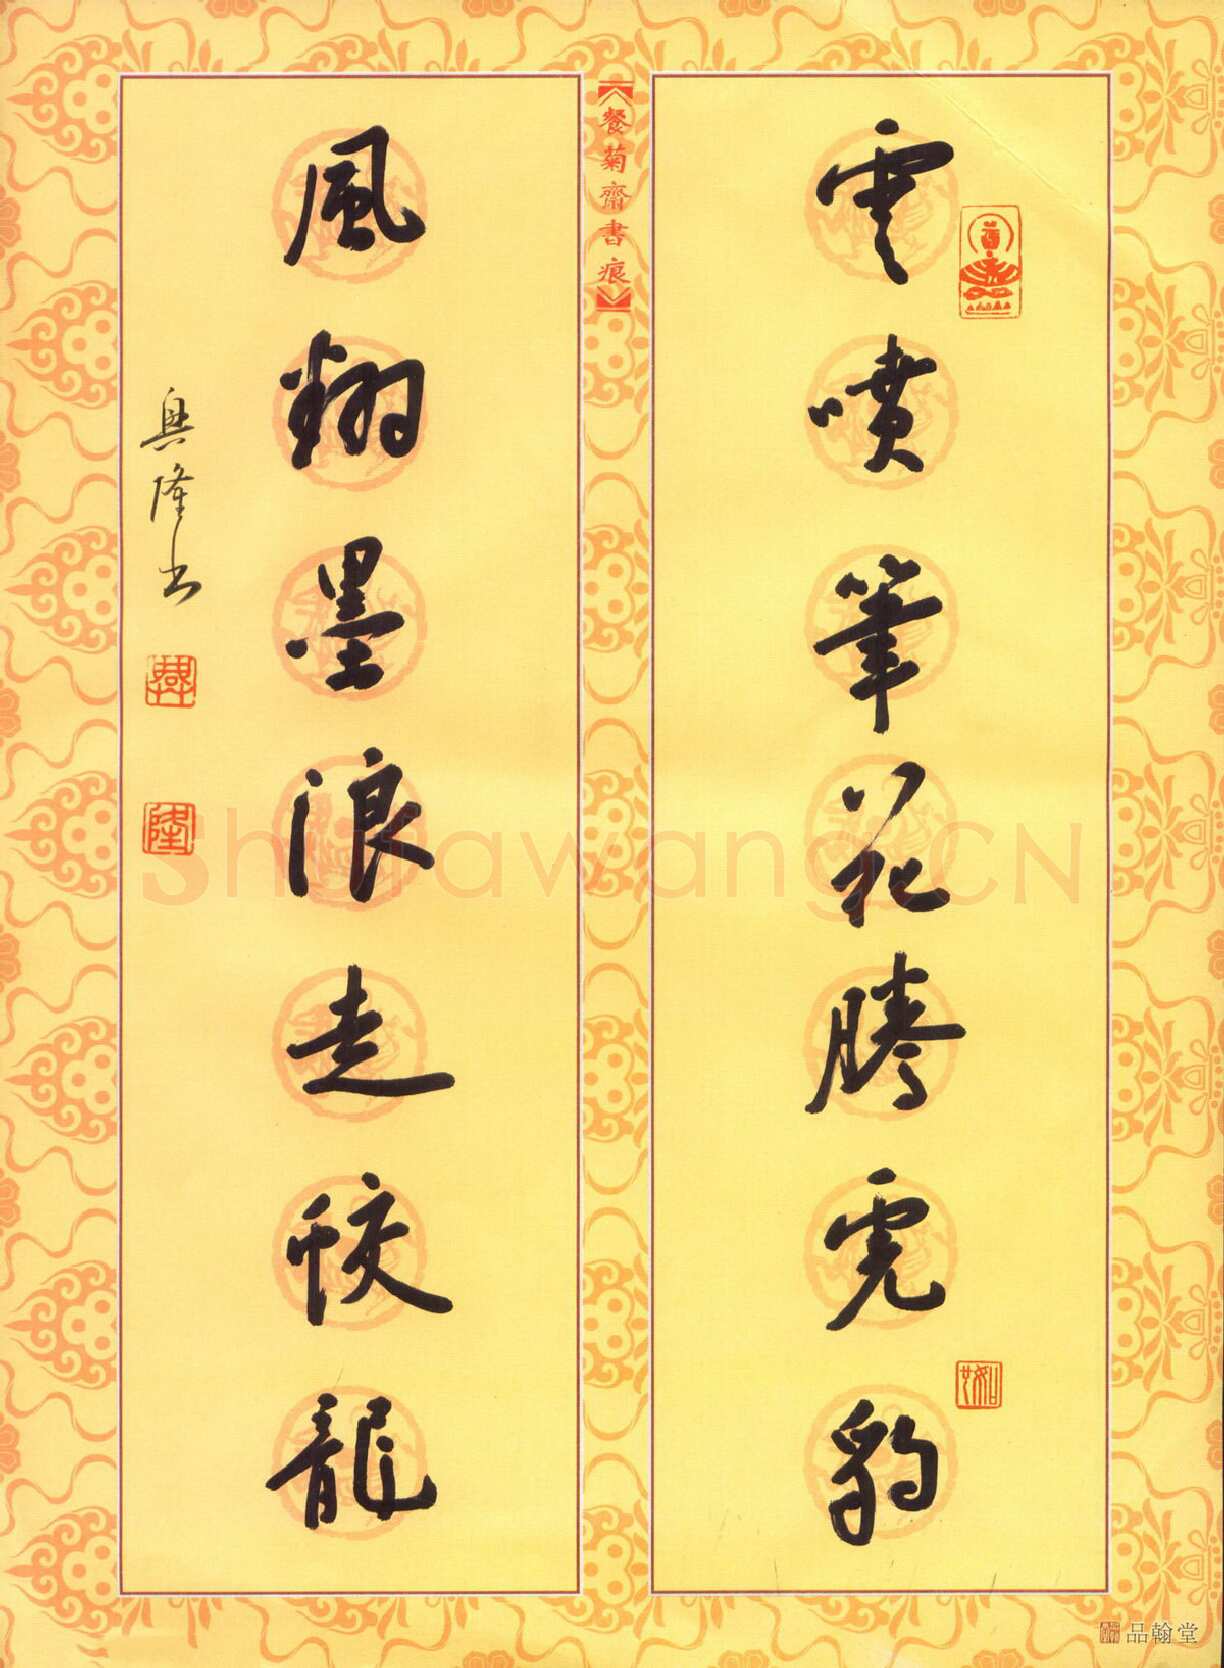 雲噴筆花騰虎豹
風翔墨浪走蛟龍
興隆书
餐菊齋書痕
興
隆
Shufawang.CN
品翰堂